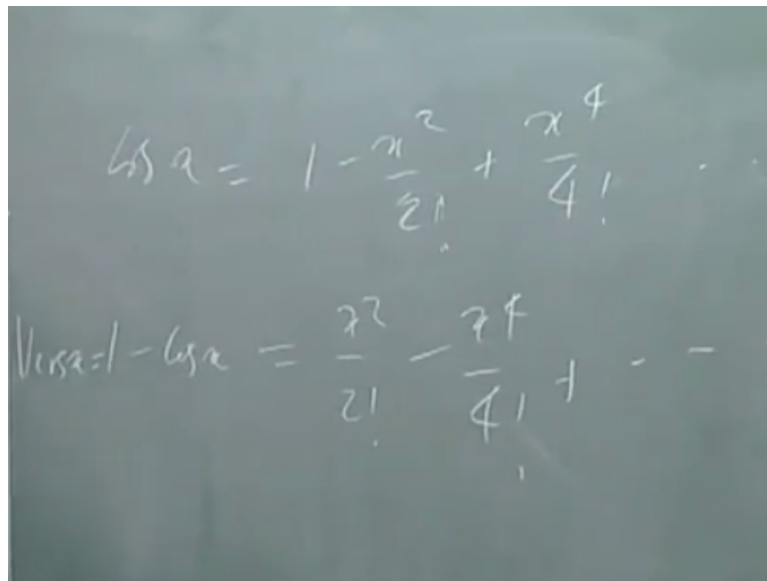 cos x = 1 - x²/2! + x⁴/4! ...
Vers x = 1 - cos x = x²/2! - x⁴/4! + . . -